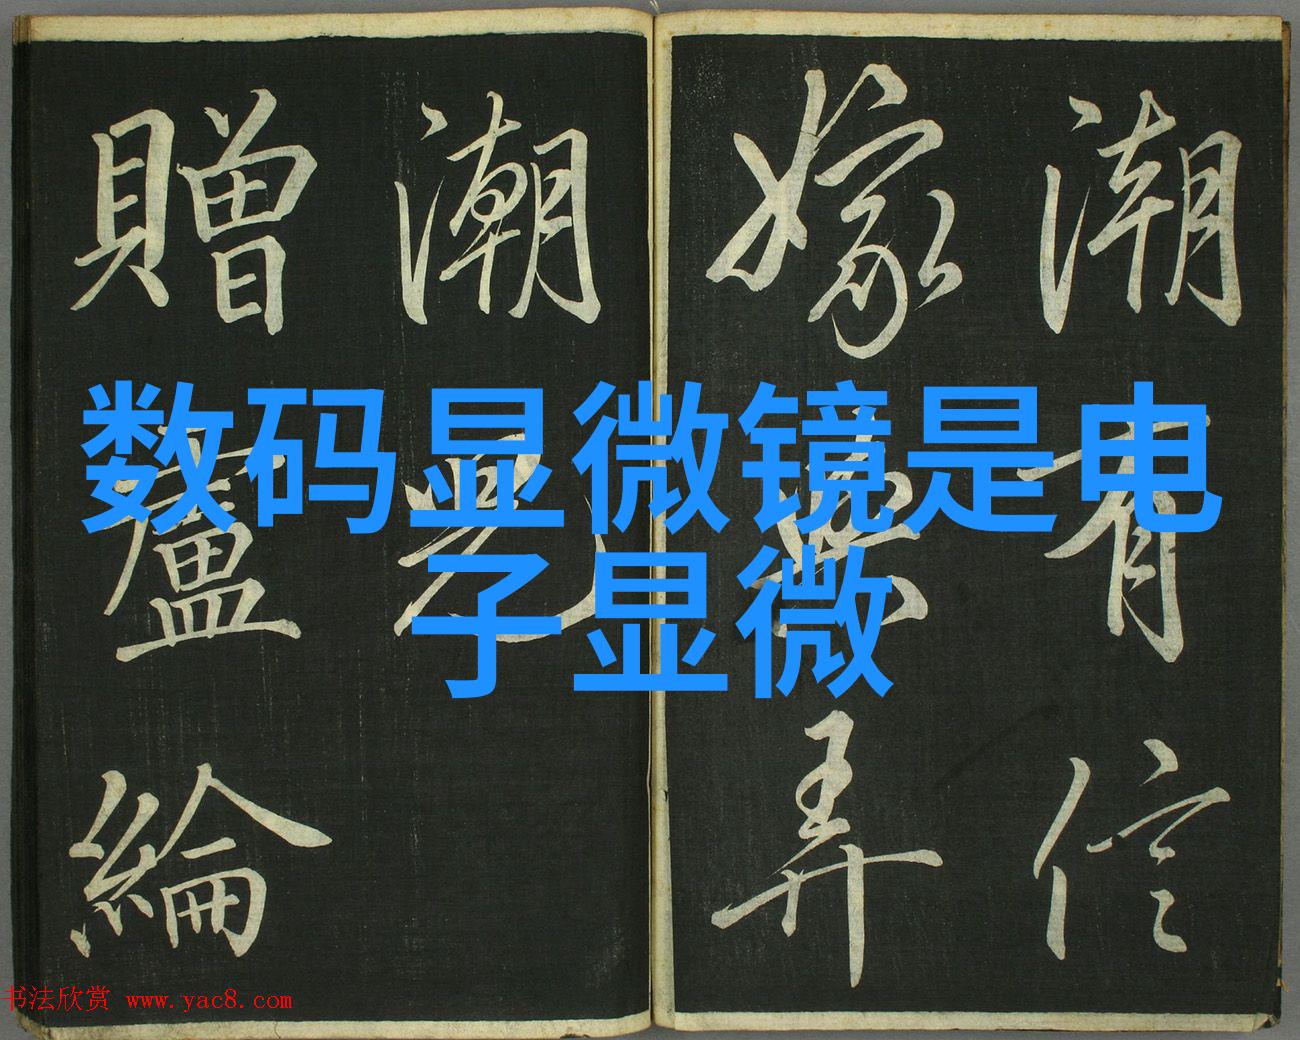 潮有信
嫁與弄
潮兒
贈盧綸
数码显微镜是电
子显微
书法欣赏 www.yac8.com